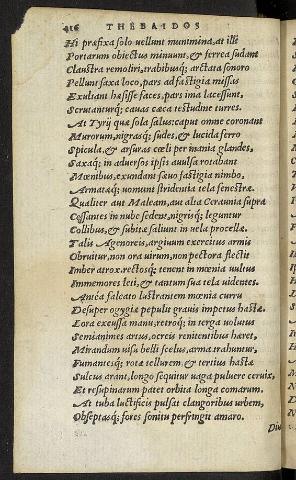 416 THEBAIDOS
Hi præfixa solo uellunt munimina, at illi
Portarum obiectus minuunt, & ferrea sudant
Claustra remoliri, trabibusq; arctata sonoro
Pellunt saxa loco, pars ad fastigia missas
Exultant hæsisse faces, pars ima lacessunt,
Scrutanturq; cauas cæca testudine turres.
At Tyrij quæ sola salus: caput omne coronant
Murorum, nigrasq; sudes, & lucida ferro
Spicula, & arsuras cœli per inania glandes,
Saxaq; in aduersos ipsis auulsa rotabant
Mœnibus, exundam sæuo fastigia nimbo,
Armataq; uomunt stridentia tela fenestræ.
Qualiter aut Maleam, aut alta Ceraunia supra
Cessantes in nube sedens, nigrisq; leguntur
Collibus, & subitæ saliunt in uela procellæ.
Talis Agenoreis, argiuum exercitus armis
Obruitur, non ora uirum, non pectora flectit
Imber atrox. rectosq; tenent in mœnia uultus
Immemores leti, & tantum sua tela uidentes.
Antea falcato lustrantem mœnia curru
Desuper ogygiæ pepulit grauis impetus hastæ.
Lora excussa manu, retroq; in terga uolutus
Semianimes artus, ocreis renitentibus hæret,
Mirandum uisu belli scelus, arma trahuntur,
Fumantesq; rotæ tellurem, & tertius hastæ
Sulcus arant, longo sequitur uaga puluere ceruix,
Et resupinarum patet orbita longa comarum.
At tuba luctificis pulsat clangoribus urbem,
Obseptasq; fores sonitu perfringit amaro.